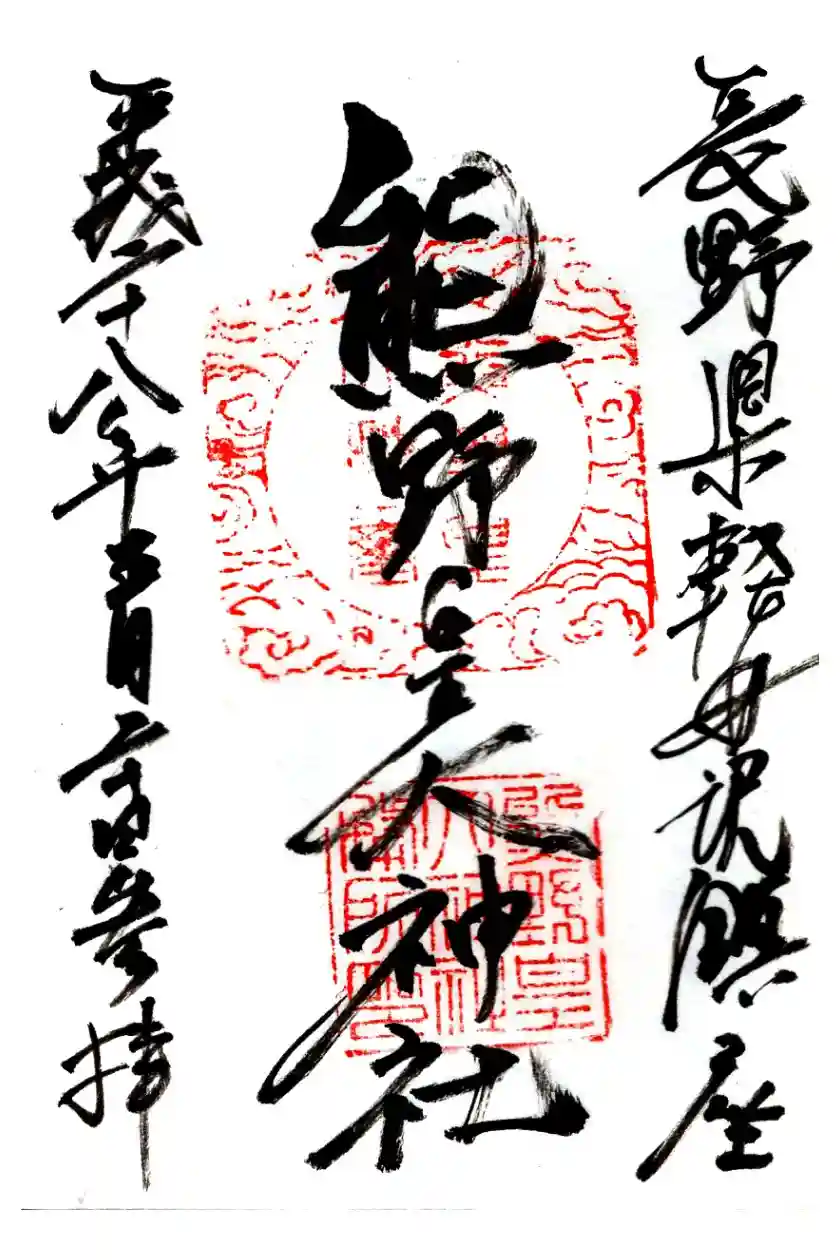 長野県軽井沢鎮座
熊野皇大神社
平成二十八年五月 参拝
熊野皇
大神社
務所印